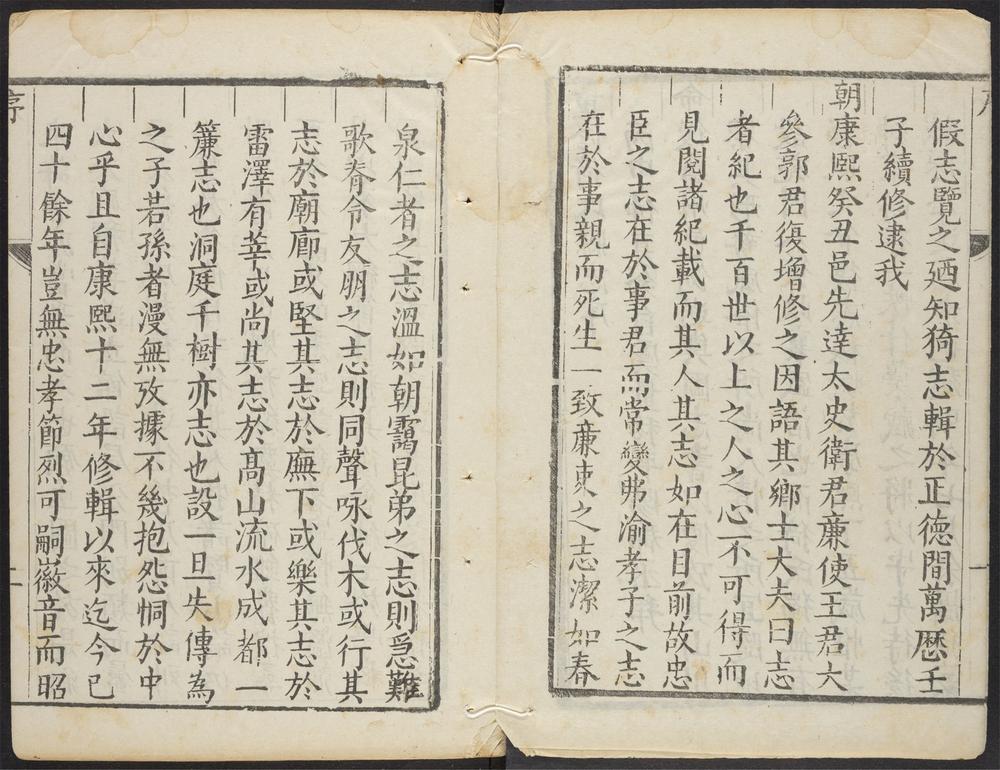 假志覽之廼知猗志輯於正德間萬曆壬
子續修逮我
朝康熙癸丑邑先達太史衛君亷使王君大
參郭君復增修之因語其鄉士大夫曰志
者紀也千百世以上之人之心不可得而
見閱諸紀載而其人其志如在目前故忠
臣之志在於事君而常變弗渝孝子之志
在於事親而死生一致亷吏之志潔如春
泉仁者之志溫如朝靄昆弟之志則急難
歌脊令友朋之志則同聲咏伐木或行其
志於廟廊或堅其志於廡下或樂其志於
雷澤有莘或尚其志於高山流水成都一
簾志也洞庭千樹亦志也設一旦失傳為
之子若孫者漫無攷據不幾抱怨恫於中
心乎且自康熙十二年修輯以來迄今已
四十餘年豈無忠孝節烈可嗣徽音而昭
序
二